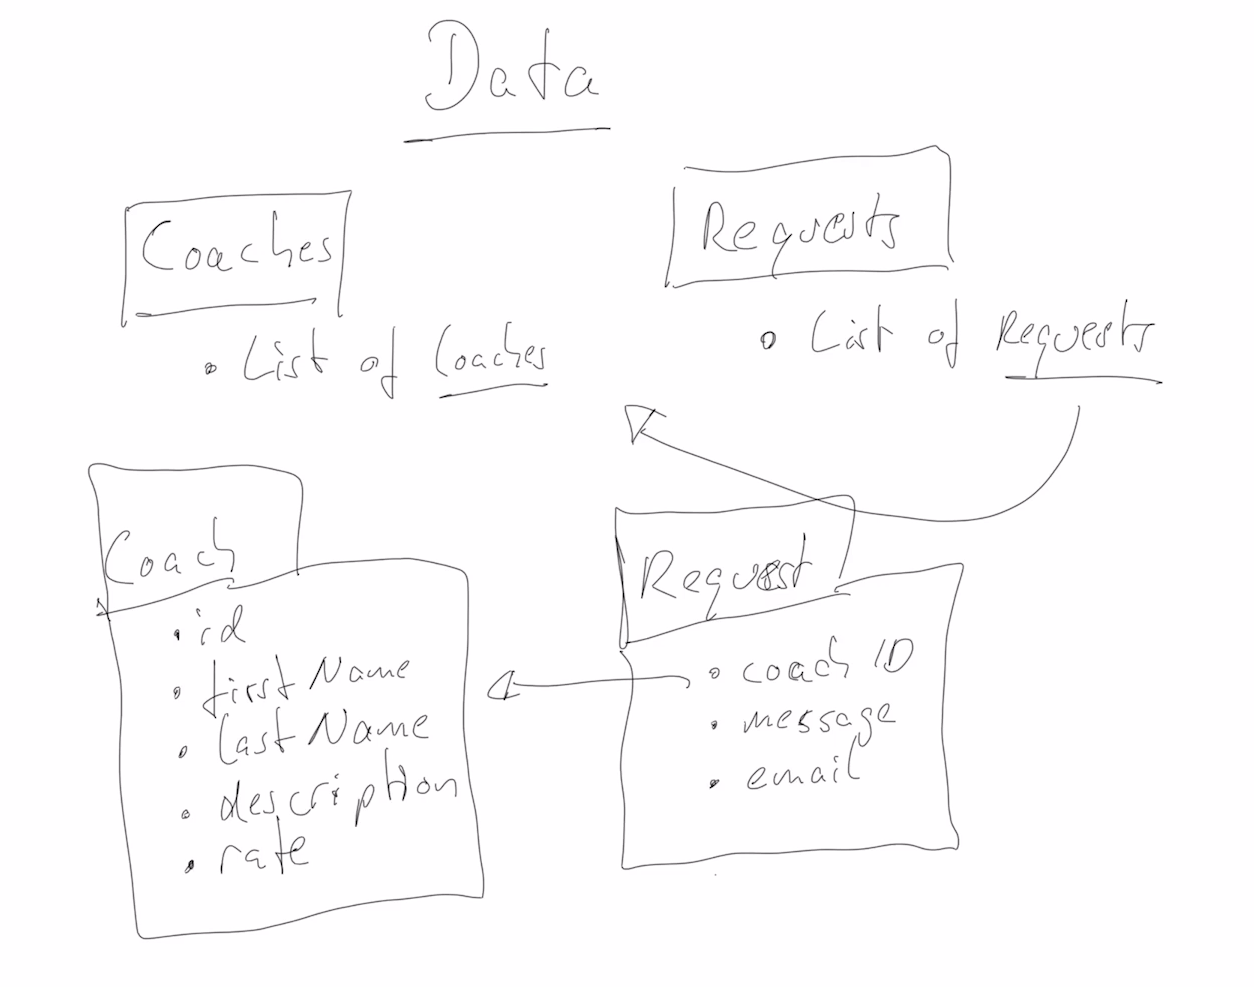 Data
Coaches
Requests
• List of Coaches
• List of Requests
Coach
• id
• firstName
• lastName
• description
• rate
Request
• coach ID
• message
• email